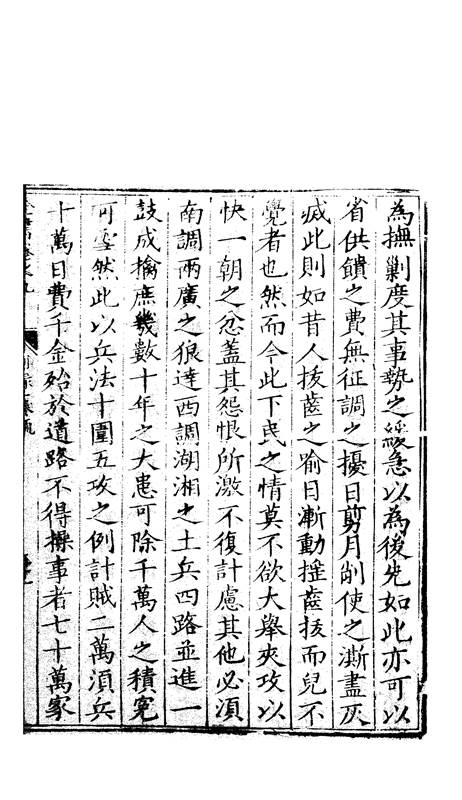 為撫剿度其事勢之緩急以為後先如此亦可以
省供饋之費無征調之擾日剪月削使之澌盡灰
滅此則如昔人拔齒之喻日漸動搖齒拔而兒不
覺者也然而今此下民之情莫不欲大舉夾攻以
快一朝之忿蓋其怨恨所激不復計慮其他必須
南調兩廣之狼達西調湖湘之土兵四路並進一
鼓成擒庶幾數十年之大患可除千萬人之積寃
可雪然此以兵法十圍五攻之例計賊二萬須兵
十萬日費千金殆於道路不得操事者七十萬家